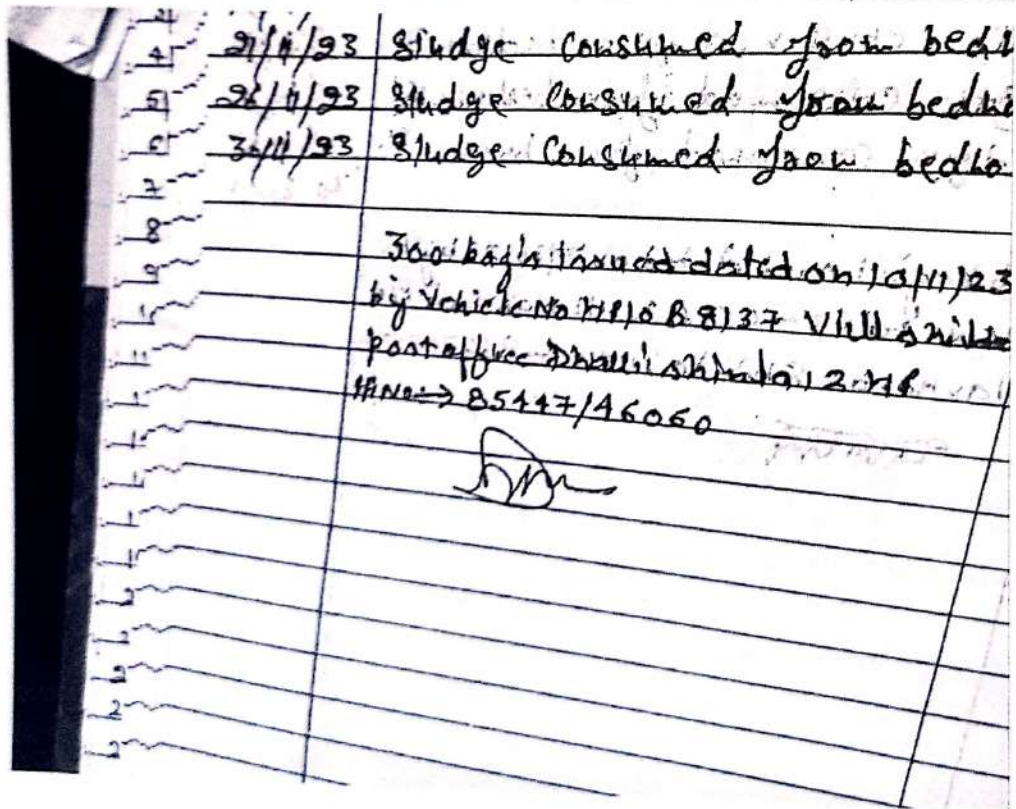 4 21/11/23 Sludge Consumed from bed
5 26/11/23 Sludge Consumed from bed
6 30/11/23 Sludge Consumed from bed
7
8 300 bag's Issued dated on 10/11/23
9 by Vehicle No HP10 B 8137 Vill
post office Dhalli shimla 12 HP
No⇒ 85447/46060